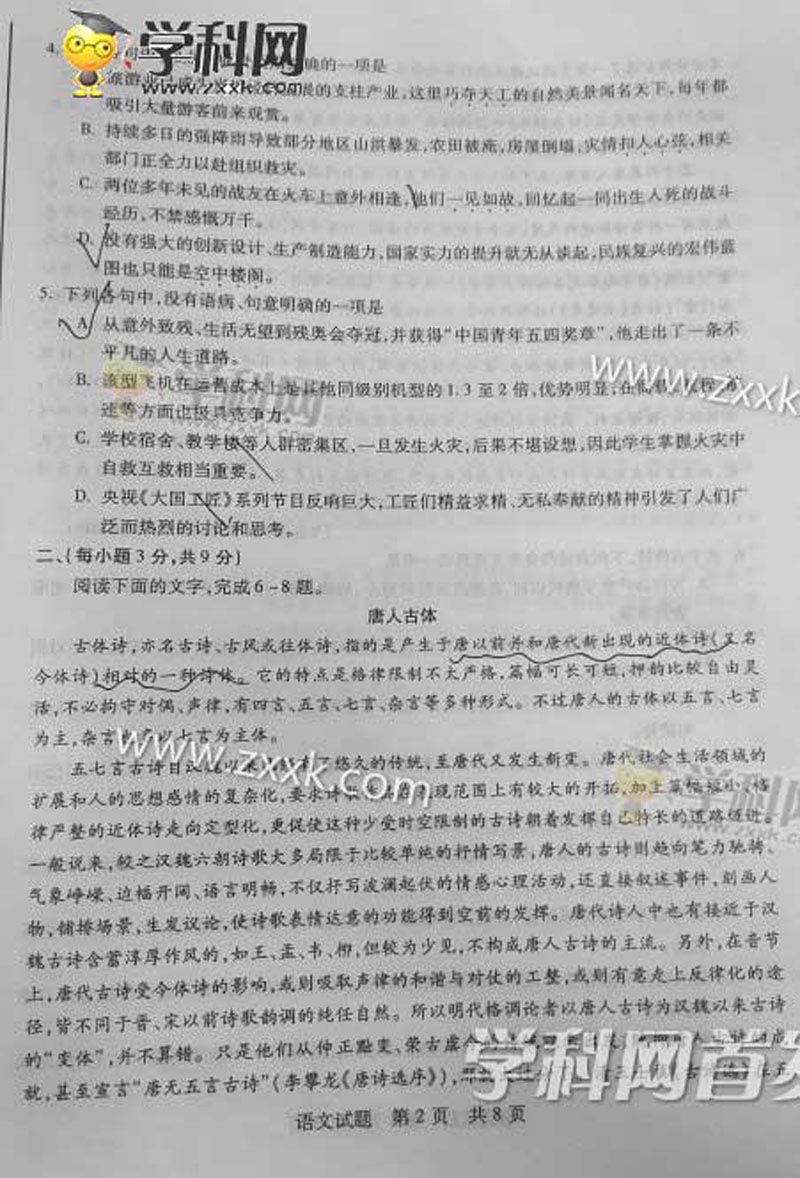 学科网
www.zxxk.com
4.
确的一项是
展的支柱产业,这里巧夺天工的自然美景闻名天下,每年都
吸引大量游客前来观赏。
B. 持续多日的强降雨导致部分地区山洪暴发,农田被淹,房屋倒塌,灾情扣人心弦,相关
部门正全力以赴组织救灾。
C. 两位多年未见的战友在火车上意外相逢,他们一见如故,回忆起一同出生入死的战斗
经历,不禁感慨万千。
D. 没有强大的创新设计、生产制造能力,国家实力的提升就无从谈起,民族复兴的宏伟蓝
图也只能是空中楼阁。
5. 下列各句中,没有语病、句意明确的一项是
A. 从意外致残、生活无望到残奥会夺冠,并获得“中国青年五四奖章”,他走出了一条不
平凡的人生道路。
B. 该型飞机在运营成本上是其他同级别机型的1.3至2倍,优势明显;在
述等方面也极具竞争力。
C. 学校宿舍、教学楼等人群密集区,一旦发生火灾,后果不堪设想,因此学生掌握火灾中
自救互救相当重要。
D. 央视《大国工匠》系列节目反响巨大,工匠们精益求精、无私奉献的精神引发了人们广
泛而热烈的讨论和思考。
二、(每小题3分,共9分)
阅读下面的文字,完成6-8题。
唐人古体
古体诗,亦名古诗、古风或往体诗,指的是产生于唐以前并和唐代新出现的近体诗(又名
今体诗)相对的一种诗体。它的特点是格律限制不太严格,篇幅可长可短,押韵比较自由灵
活,不必拘守对偶、声律,有四言、五言、七言、杂言等多种形式。不过唐人的古体以五言、七言
为主,杂言也多以七言为主体。
五七言古诗自汉魏以来已经有了悠久的传统,至唐代又发生新变。唐代社会生活领域的
扩展和人的思想感情的复杂化,要求诗歌在表现范围上有较大的开拓,加上篇幅短小、格
律严整的近体诗走向定型化,更促使这种少受时空限制的古诗朝着发挥自己特长的道路迈进。
一般说来,较之汉魏六朝诗歌大多局限于比较单纯的抒情写景,唐人的古诗则趋向笔力驰骋、
气象峥嵘、边幅开阔、语言明畅,不仅抒写波澜起伏的情感心理活动,还直接叙述事件,刻画人
物,铺排场景,生发议论,使诗歌表情达意的功能得到空前的发挥。唐代诗人中也有接近于汉
魏古诗含蓄淳厚作风的,如王、孟、韦、柳,但较为少见,不构成唐人古诗的主流。另外,在音节
上,唐代古诗受今体诗的影响,或则吸取声律的和谐与对仗的工整,或则有意走上反律化的途
径,皆不同于晋、宋以前诗歌韵调的纯任自然。所以明代格调论者以唐人古诗为汉魏以来古诗
的“变体”,并不算错。只是他们从伸正黜变、荣古虐今
就,甚至宣言“唐无五言古诗”(李攀龙《唐诗选序》),
语文试题 第2页 共8页
www.zxxk.com
学科网
www.zxxk.com
学科网
zxxk.com
学科网首发